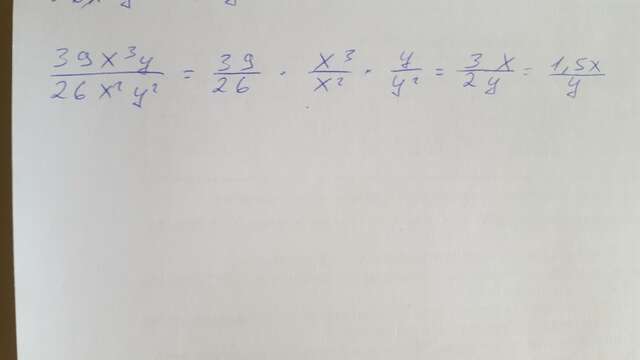 39x³y / 26x²y² = 39/26 · x³/x² · y/y² = 3x/2y = 1,5x/y